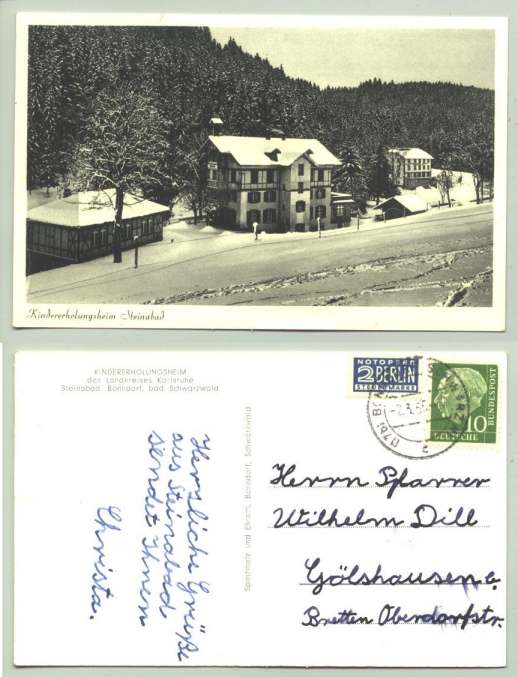 Kindererholungsheim Steinabad
KINDERERHOLUNGSHEIM
des Landkreises Karlsruhe
Steinabad, Bonndorf, bad Schwarzwald
NOTOPFER
2 BERLIN
STEUERMARKE
10
DEUTSCHE
BUNDESPOST
(17b) BON
-2.3.55
Herzliche Grüße
aus Steinabad
sendet Ihnen
Christa.
Bonndorf, Schwarzwald
Herrn Pfarrer
Wilhelm Dill
Gölshausen b.
Bretten Oberdorfstr.